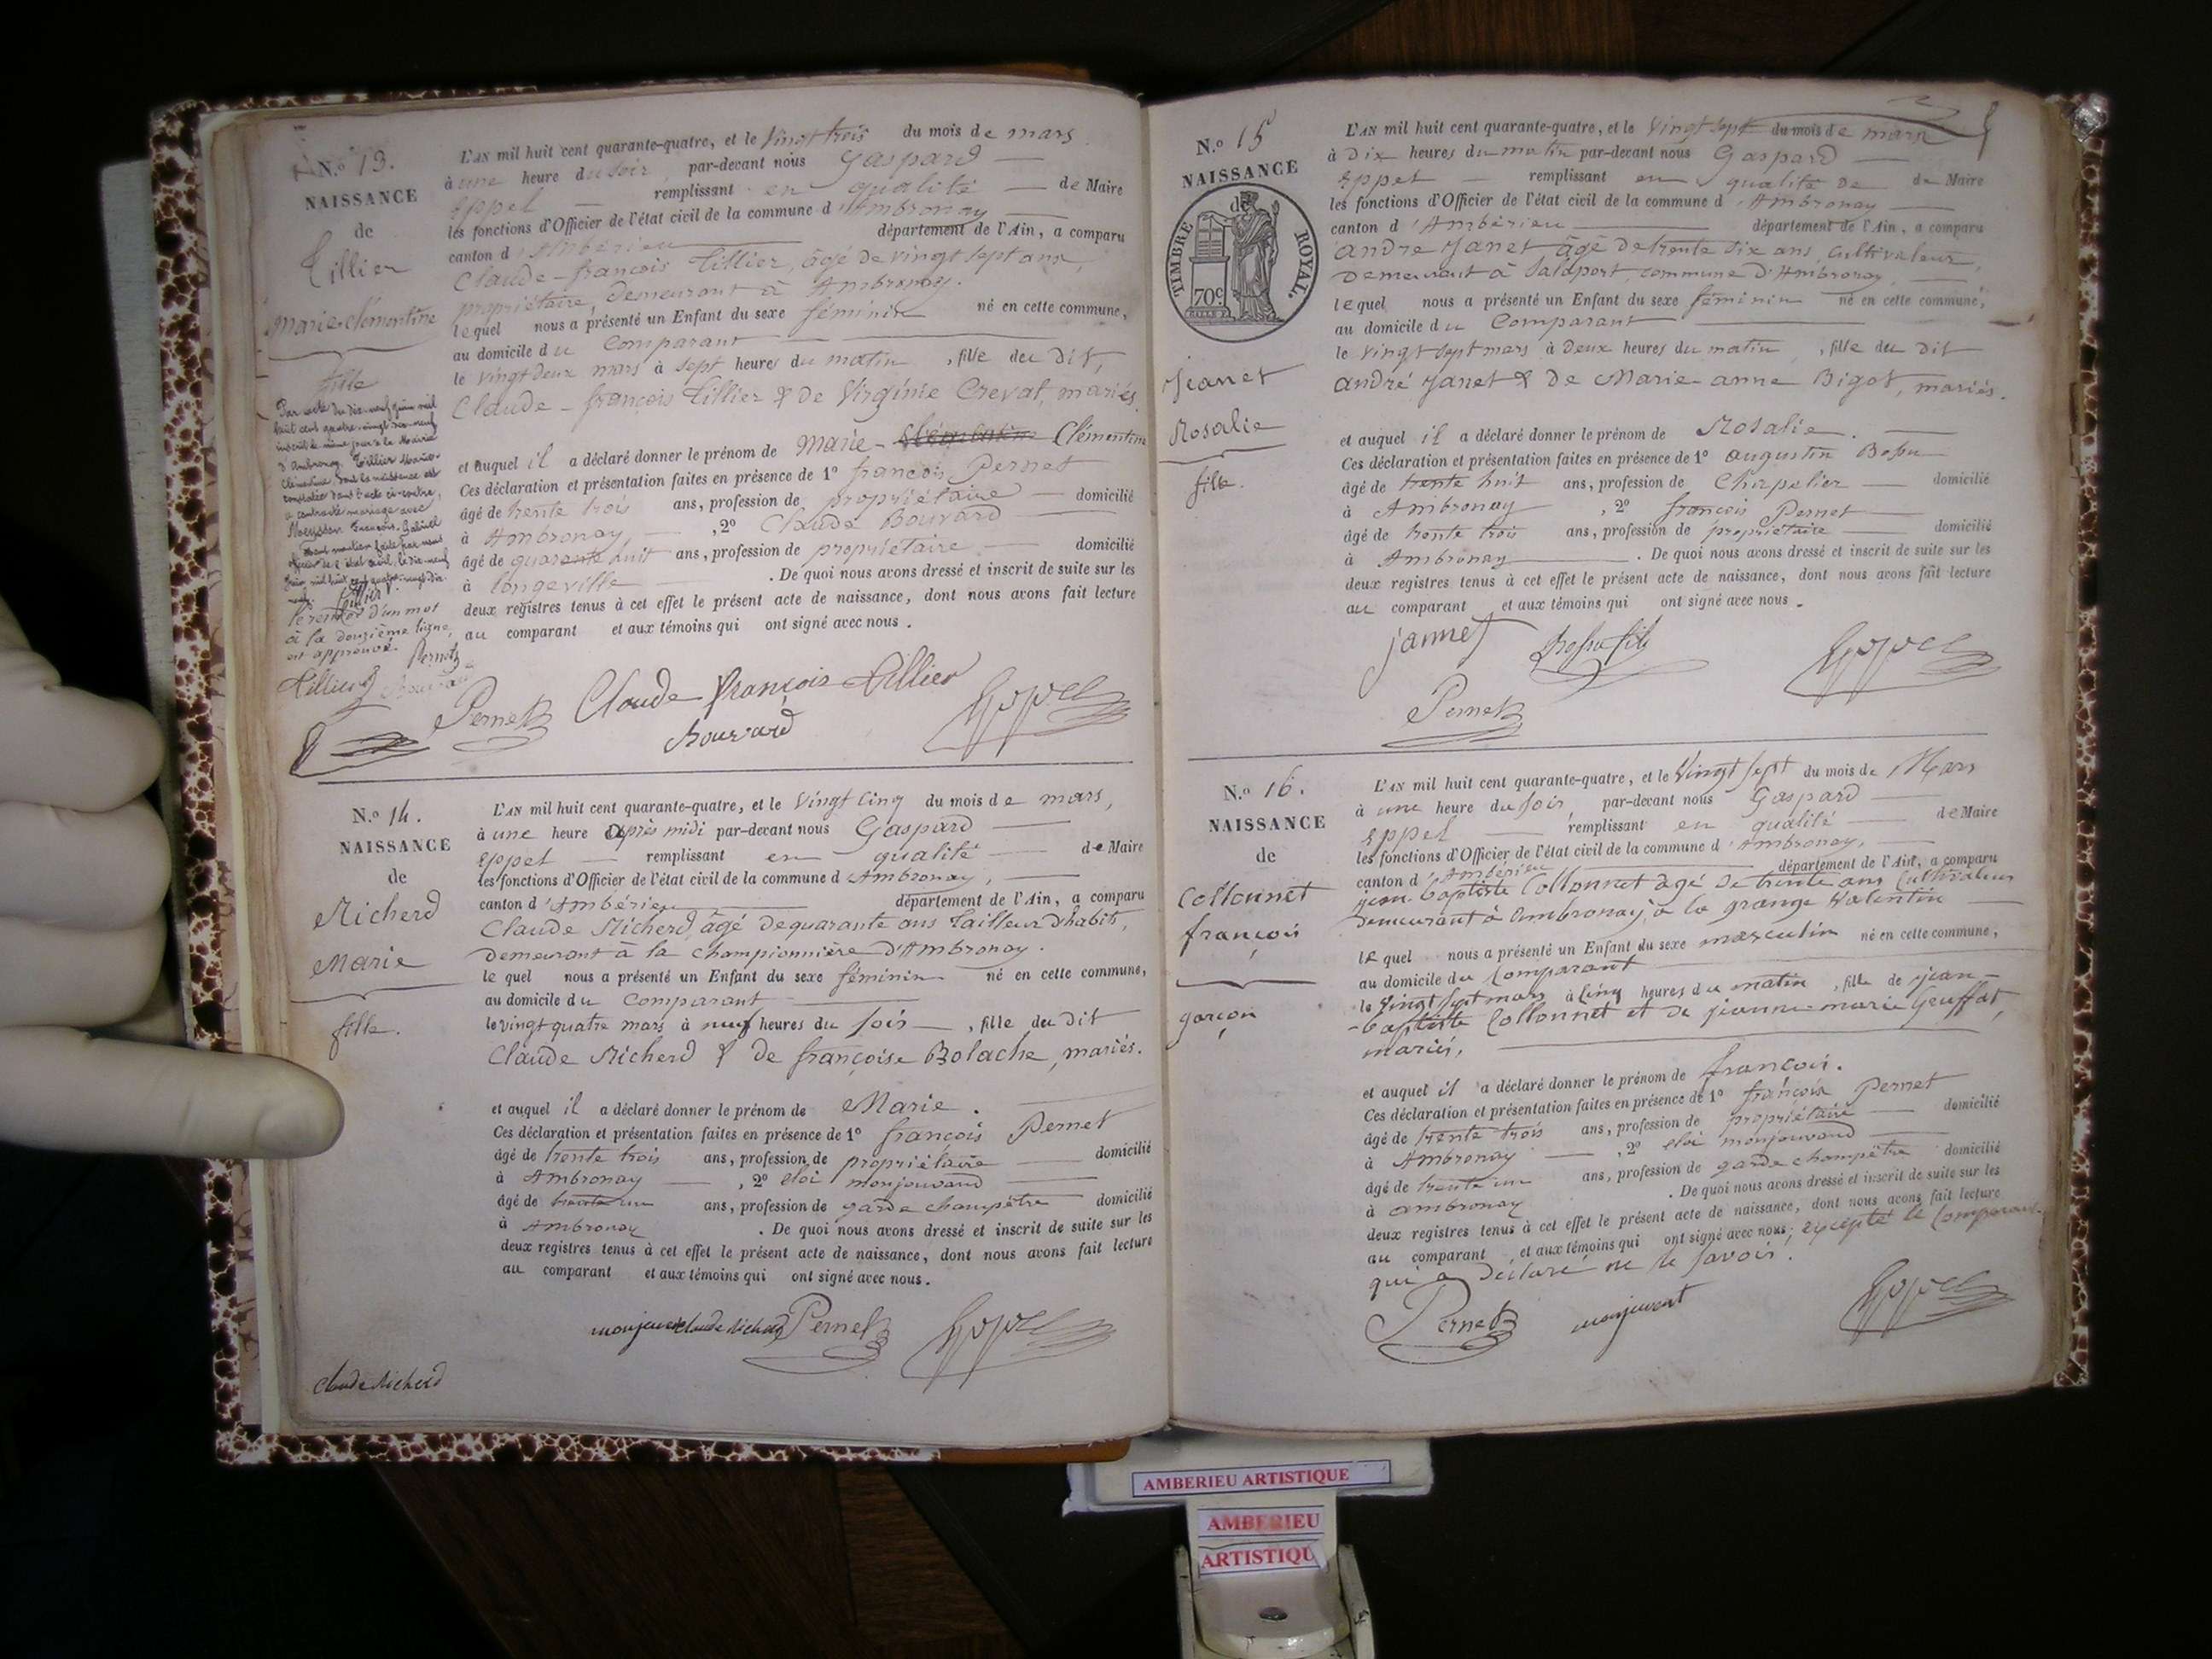 N.º 13.
NAISSANCE
de
Tillier
Marie-Clémentine
fille
Par acte du dix-neuf juin mil
huit cent quatre-vingt dix-neuf
inscrit le même jour à la Mairie
d'Ambronay, Tillier Marie-
Clémentine dont la naissance est
constatée dans l'acte ci-contre,
a contracté mariage avec
François-Gabriel
mention faite par nous
officier de l'état civil, le dix-neuf
juin mil huit cent quatre-vingt-dix-
neuf.
Tillier
le renvoi d'un mot
à la douzième ligne,
est approuvé. Pernet
Tillier Bouvard
L'AN mil huit cent quarante-quatre, et le Vingt trois du mois de mars
à une heure du soir, par-devant nous Gaspard
Eppel remplissant en qualité de Maire
les fonctions d'Officier de l'état civil de la commune d'Ambronay
canton d'Ambérieu département de l'Ain, a comparu
Claude-françois Tillier, âgé de vingt sept ans,
propriétaire, demeurant à Ambronay.
lequel nous a présenté un Enfant du sexe féminin né en cette commune,
au domicile du Comparant
le vingt deux mars à sept heures du matin, fille du dit,
Claude-françois Tillier & de Virginie Creval, mariés.
et auquel il a déclaré donner le prénom de Marie- Clémentine
Ces déclaration et présentation faites en présence de 1º françois Pernet
âgé de trente trois ans, profession de propriétaire domicilié
à Ambronay, , 2º Claude Bouvard
âgé de quarante huit ans, profession de propriétaire domicilié
à Longeville . De quoi nous avons dressé et inscrit de suite sur les
deux registres tenus à cet effet le présent acte de naissance, dont nous avons fait lecture
au comparant et aux témoins qui ont signé avec nous.
Pernet Claude François Tillier Eppel
Bouvard
N.º 14.
NAISSANCE
de
Richerd
Marie
fille.
L'AN mil huit cent quarante-quatre, et le Vingt cinq du mois de mars,
à une heure après midi par-devant nous Gaspard
Eppel remplissant en qualité de Maire
les fonctions d'Officier de l'état civil de la commune d'Ambronay,
canton d'Ambérieu département de l'Ain, a comparu
Claude Richerd, âgé de quarante ans Tailleur d'habits,
demeurant à la championnière d'Ambronay.
le quel nous a présenté un Enfant du sexe féminin né en cette commune,
au domicile du Comparant
le vingt quatre mars à neuf heures du soir, fille du dit
Claude Richerd & de françoise Bolache, mariés.
et auquel il a déclaré donner le prénom de Marie.
Ces déclaration et présentation faites en présence de 1º françois Pernet
âgé de trente trois ans, profession de propriétaire domicilié
à Ambronay , 2º eloi monjouvand
âgé de trente un ans, profession de garde champêtre domicilié
à Ambronay . De quoi nous avons dressé et inscrit de suite sur les
deux registres tenus à cet effet le présent acte de naissance, dont nous avons fait lecture
au comparant et aux témoins qui ont signé avec nous.
Claude Richerd Pernet Eppel
Claude Richerd
N.º 15
NAISSANCE
de
TIMBRE ROYAL.
70c.
Jeanet
Rosalie
fille.
L'AN mil huit cent quarante-quatre, et le Vingt sept du mois de mars
à Dix heures du matin par-devant nous Gaspard
Eppel remplissant en qualité de de Maire
les fonctions d'Officier de l'état civil de la commune d'Ambronay
canton d'Ambérieu département de l'Ain, a comparu
andré Janet âgé de trente six ans, Cultivateur,
Demeurant à Salaport, commune d'Ambronay,
lequel nous a présenté un Enfant du sexe féminin né en cette commune,
au domicile du Comparant
le vingt sept mars à deux heures du matin, fille du dit
andré Janet & de Marie-anne Bigot, mariés.
et auquel il a déclaré donner le prénom de Rosalie.
Ces déclaration et présentation faites en présence de 1º augustin Bossu
âgé de trente huit ans, profession de Chapelier domicilié
à Ambronay , 2º françois Pernet
âgé de trente trois ans, profession de propriétaire domicilié
à Ambronay . De quoi nous avons dressé et inscrit de suite sur les
deux registres tenus à cet effet le présent acte de naissance, dont nous avons fait lecture
au comparant et aux témoins qui ont signé avec nous.
jannet Bossu fils Eppel
Pernet
N.º 16.
NAISSANCE
de
Collonnet
françois
garçon
L'AN mil huit cent quarante-quatre, et le Vingt sept du mois de Mars
à une heure du soir, par-devant nous Gaspard
Eppel remplissant en qualité de Maire
les fonctions d'Officier de l'état civil de la commune d'Ambronay,
canton d'Ambérieu département de l'Ain, a comparu
jean-baptiste Collonnet âgé de trente ans Cultivateur
demeurant à Ambronay, à la grange Valentin
lequel nous a présenté un Enfant du sexe masculin né en cette commune,
au domicile du Comparant
le Vingt sept mars à Cinq heures du matin, fils de jean-
-baptiste Collonnet et de jeanne-marie Geuffat,
mariés,
et auquel il a déclaré donner le prénom de françois.
Ces déclaration et présentation faites en présence de 1º françois Pernet
âgé de trente trois ans, profession de propriétaire domicilié
à Ambronay , 2º eloi monjouvand
âgé de trente un ans, profession de garde champêtre domicilié
à ambronay . De quoi nous avons dressé et inscrit de suite sur les
deux registres tenus à cet effet le présent acte de naissance, dont nous avons fait lecture
au comparant et aux témoins qui ont signé avec nous, excepté le Comparant
qui a déclaré ne le savoir.
Pernet monjuvent Eppel
AMBERIEU ARTISTIQUE
AMBERIEU
ARTISTIQU